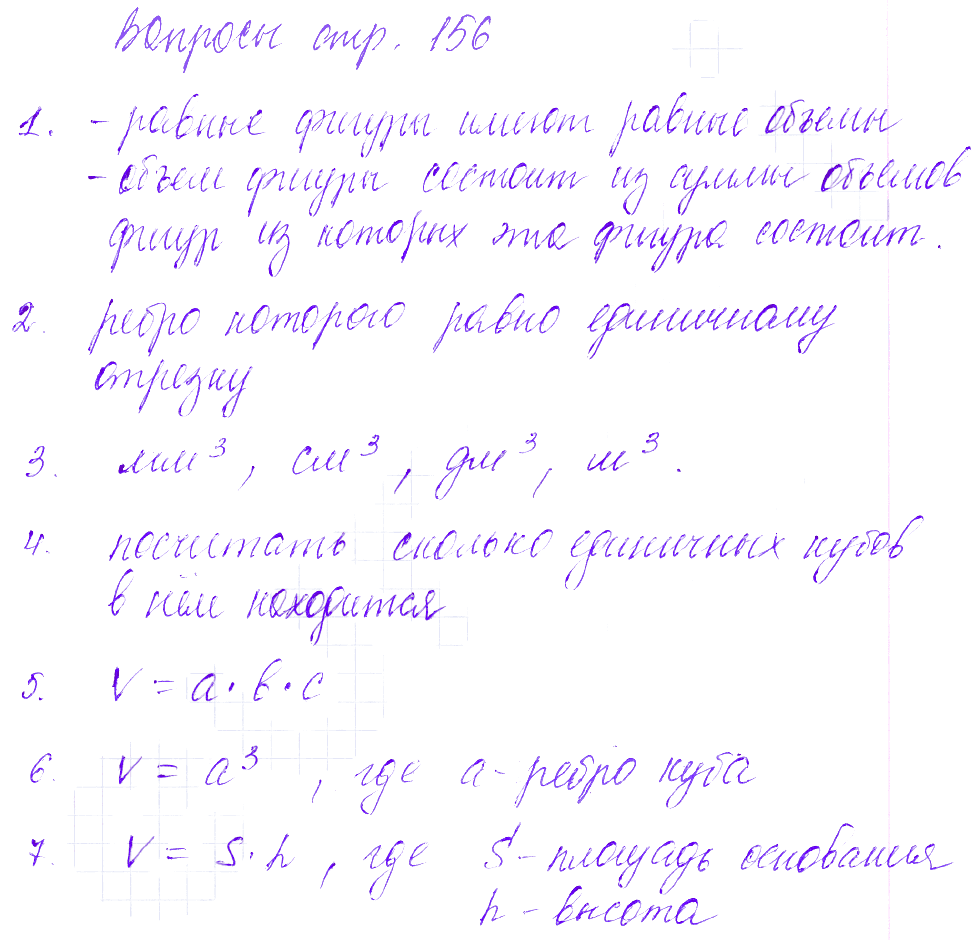 Вопросы стр. 156
1. - равные фигуры имеют равные объемы
- объем фигуры состоит из суммы объемов
фигур из которых эта фигура состоит.
2. ребро которого равно единичному
отрезку
3. мм³, см³, дм³, м³.
4. посчитать сколько единичных кубов
в нём находится
5. V = a·b·c
6. V = a³, где a - ребро куба
7. V = S·h, где S - площадь основания
h - высота